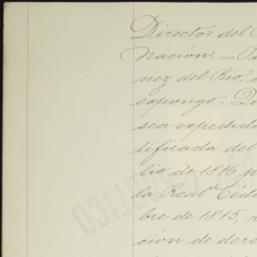 Director del
Nación. —
nez del Rio,
expongo: Que
sea expedida
tificada del
lio de 1816 p
la Real Cédu
bre de 1815,
cion de dere